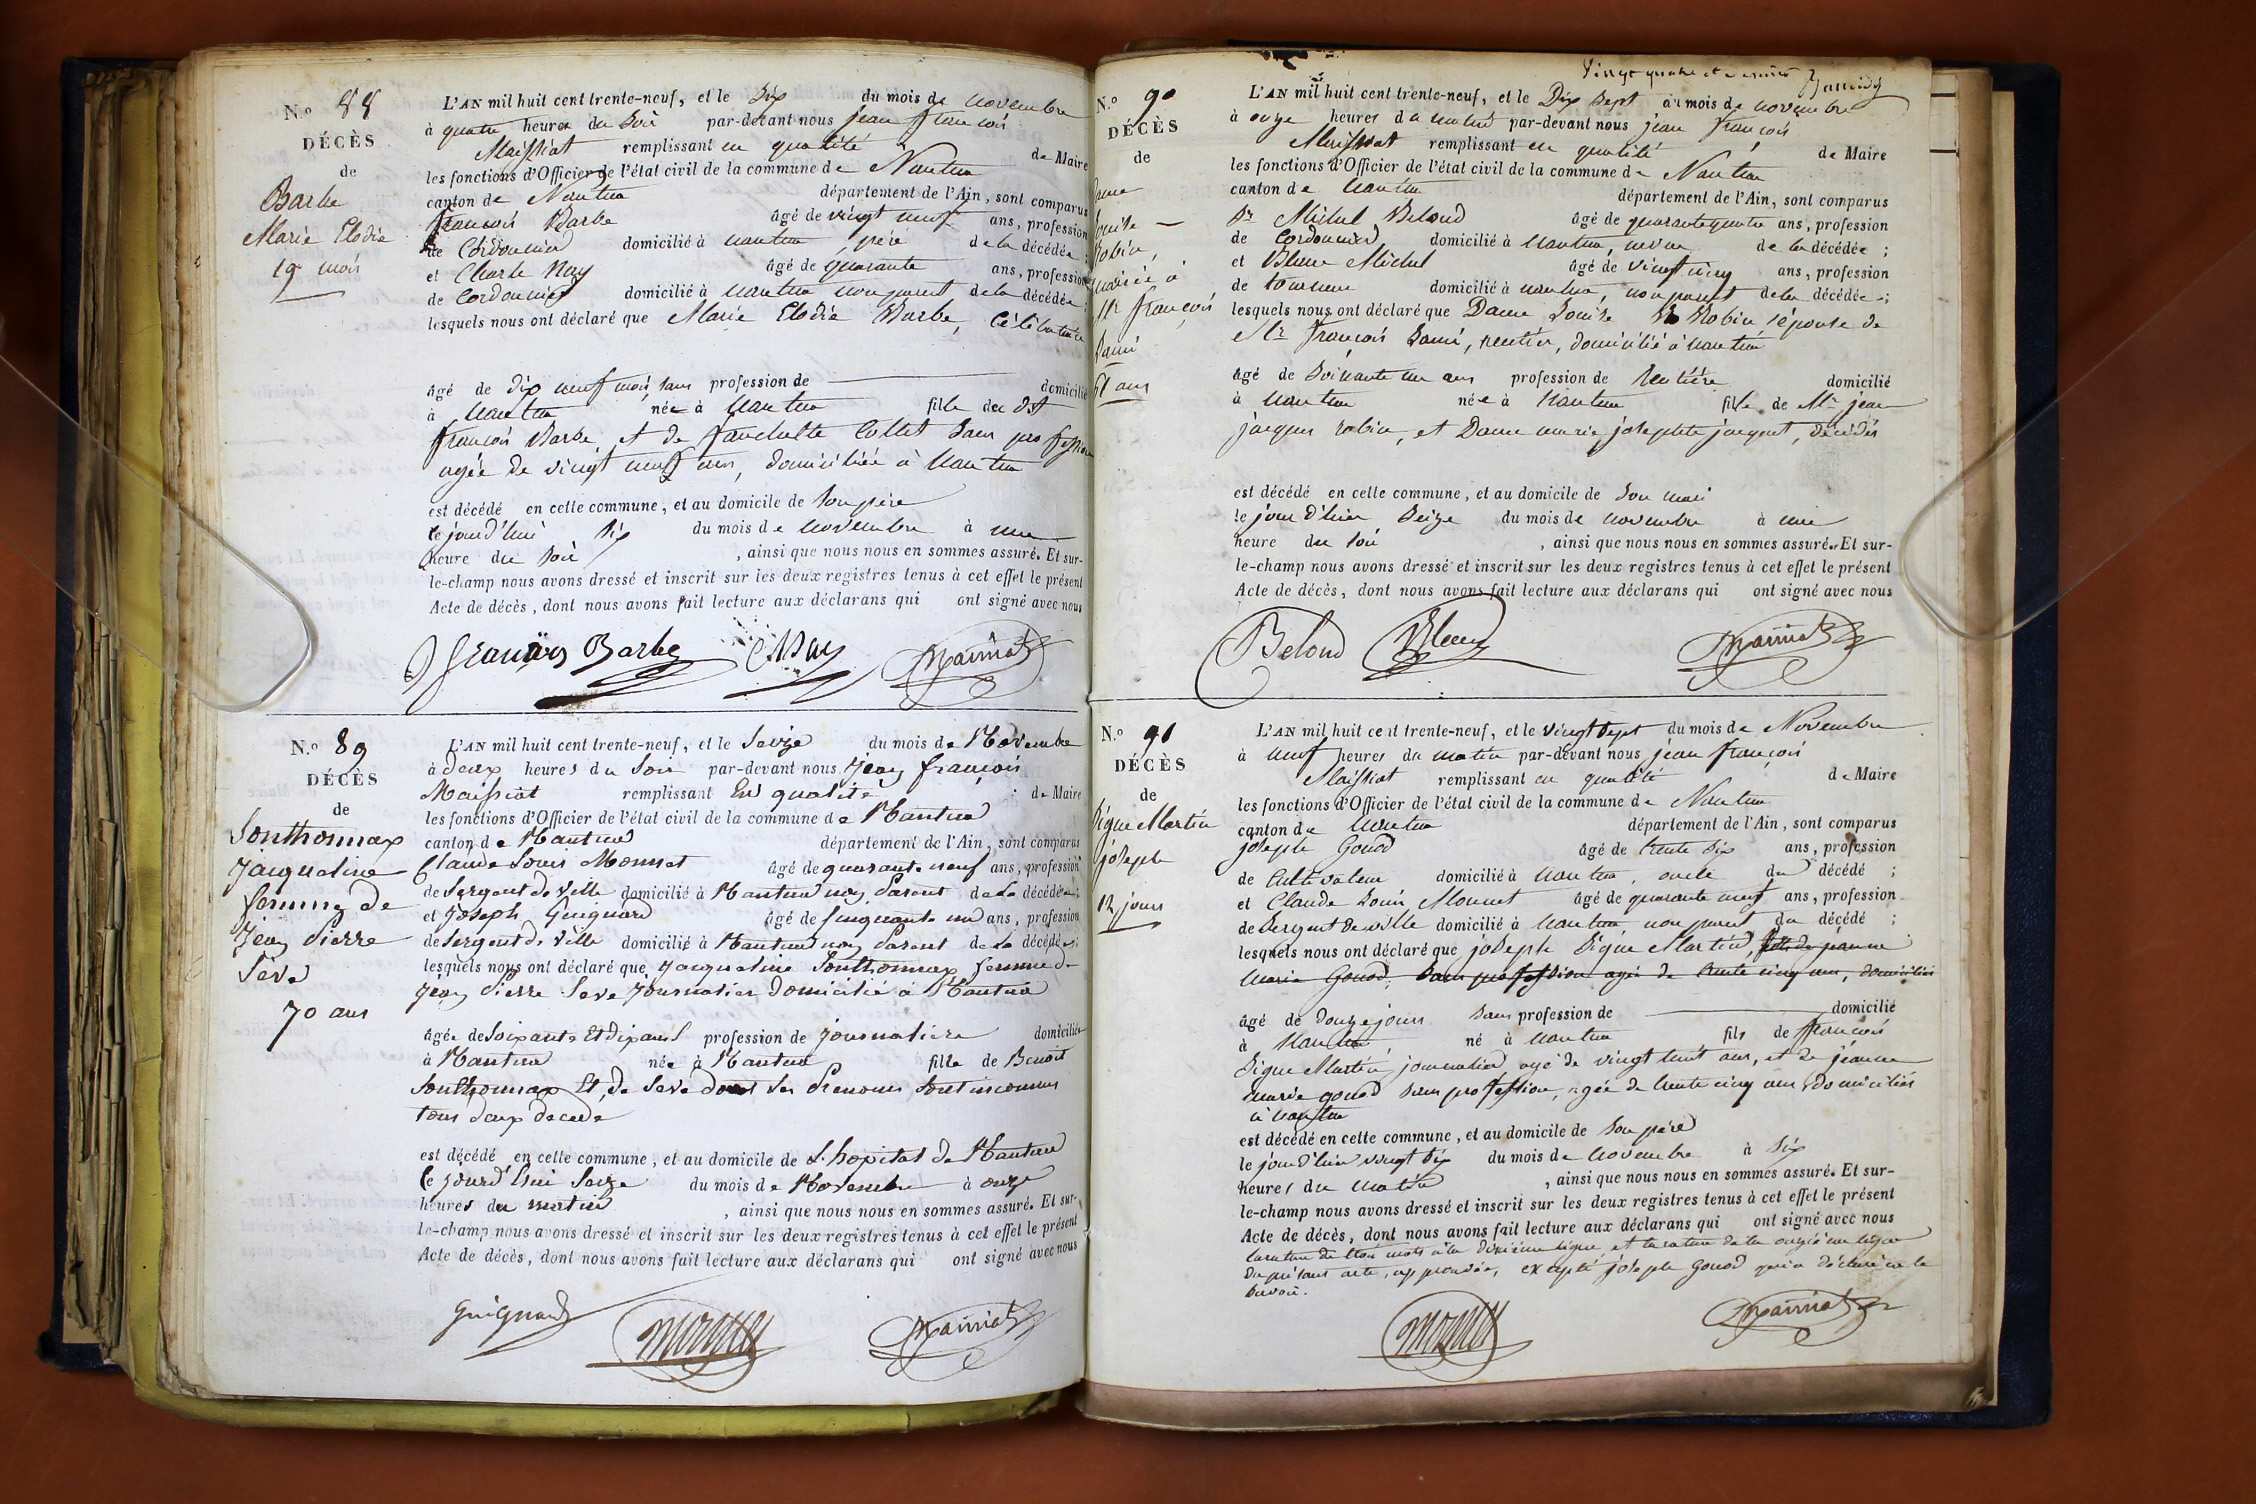 N.o 88
DÉCÈS
de
Barbe
Marie Elodie
19 mois
L'AN mil huit cent trente-neuf, et le Six du mois de novembre
à quatre heures du Soir par-devant nous jean françois
Maissiat remplissant en qualité de Maire
les fonctions d'Officier de l'état civil de la commune de Nantua
canton de Nantua département de l'Ain, sont comparus
françois Barbe âgé de vingt neuf ans, profession
de Cordonnier domicilié à nantua, père de la décédée ;
et Charle Nay âgé de quarante ans, profession
de Cordonnier domicilié à nantua non parent de la décédée ;
lesquels nous ont déclaré que Marie Elodie Barbe, Célibataire
âgé de dix neuf mois, sans profession de domicilié
à nantua née à nantua fille du dit
françois Barbe et de fanchette Collet Sans profession
agée de vingt neuf ans, domiciliée à nantua
est décédé en cette commune, et au domicile de Son père
le jourd'hui Six du mois de novembre à une
heure du Soir, ainsi que nous nous en sommes assuré. Et sur-
le-champ nous avons dressé et inscrit sur les deux registres tenus à cet effet le présent
Acte de décès, dont nous avons fait lecture aux déclarans qui ont signé avec nous
françois Barbe
N.o 89
DÉCÈS
de
Sonthonnax
Jacqueline
femme de
Jean Pierre
Sève
70 ans
L'AN mil huit cent trente-neuf, et le Seize du mois de Novembre
à deux heures du Soir par-devant nous Jean françois
Maissiat remplissant En qualité de Maire
les fonctions d'Officier de l'état civil de la commune de Nantua
canton de Nantua département de l'Ain, sont comparus
Claude Louis Monnet âgé de quarante neuf ans, profession
de Sergent de Ville domicilié à Nantua non Parent de la décédée ;
et Joseph Guignard âgé de Cinquante un ans, profession
de Sergent de Ville domicilié à Nantua non Parent de la décédée ;
lesquels nous ont déclaré que Jacqueline Sonthonnax femme de
Jean Pierre Seve Journalier domicilié à Nantua
âgée de Soixante Et dix ans profession de Journaliere domiciliée
à Nantua née à Nantua fille de Benoit
Sonthonnax Et de Seve dont les Prenoms Sont inconnus
tous deux décédé
est décédé en cette commune, et au domicile de L'hopital de Nantua
le jourd'hui Seize du mois de Novembre à onze
heures du matin, ainsi que nous nous en sommes assuré. Et sur-
le-champ nous avons dressé et inscrit sur les deux registres tenus à cet effet le présent
Acte de décès, dont nous avons fait lecture aux déclarans qui ont signé avec nous
Guignard
Vingt quatre et dernier
N.o 90
DÉCÈS
de
Dame
Louise
Robin,
mariée à
Mr françois
61 ans
L'AN mil huit cent trente-neuf, et le Dix Sept du mois de novembre
à onze heures du matin par-devant nous jean françois
Maissiat remplissant en qualité de Maire
les fonctions d'Officier de l'état civil de la commune de Nantua
canton de nantua département de l'Ain, sont comparus
Sr Michel Beloud âgé de quarante quatre ans, profession
de Cordonnier domicilié à nantua, neveu de la décédée ;
et Michel âgé de vingt cinq ans, profession
de tourneur domicilié à nantua, non parent de la décédée ;
lesquels nous ont déclaré que Dame Louise Robin, épouse de
Mr françois, rentier, domicilié à nantua
âgé de Soixante un ans profession de Rentière domicilié
à nantua née à Nantua fille de Mr jean
jacques robin, et Dame marie josephte jacquet, décédés
est décédé en cette commune, et au domicile de Son mari
le jour d'hier Seize du mois de novembre à une
heure du Soir, ainsi que nous nous en sommes assuré. Et sur-
le-champ nous avons dressé et inscrit sur les deux registres tenus à cet effet le présent
Acte de décès, dont nous avons fait lecture aux déclarans qui ont signé avec nous
Beloud
N.o 91
DÉCÈS
de
Pigue Martin
joseph
12 jours
L'AN mil huit cent trente-neuf, et le vingt Sept du mois de Novembre
à neuf heures du matin par-devant nous jean françois
Maissiat remplissant en qualité de Maire
les fonctions d'Officier de l'état civil de la commune de Nantua
canton de nantua département de l'Ain, sont comparus
joseph Gonod âgé de trente Six ans, profession
de Cultivateur domicilié à nantua, oncle du décédé ;
et Claude Louis Monnet âgé de quarante neuf ans, profession
de Sergent de ville domicilié à nantua non parent du décédé ;
lesquels nous ont déclaré que joseph Pigue Martin, fils de jeanne
marie Gonod, Sans profession agée de trente cinq ans, domiciliée
âgé de Douze jours Sans profession de domicilié
à Nantua né à nantua fils de françois
Pigue Martin, journalier, agé de vingt huit ans, et de jeanne
marie gonod Sans profession, agée de trente cinq ans, domiciliés
à nantua
est décédé en cette commune, et au domicile de Son père
le jour d'hier vingt Six du mois de novembre à Six
heures du matin, ainsi que nous nous en sommes assuré. Et sur-
le-champ nous avons dressé et inscrit sur les deux registres tenus à cet effet le présent
Acte de décès, dont nous avons fait lecture aux déclarans qui ont signé avec nous
la rature de trois mots à la dixième ligne, et la rature de la onzième ligne
du présent acte, approuvées, excepté joseph Gonod qui a déclaré ne le
Savoir.